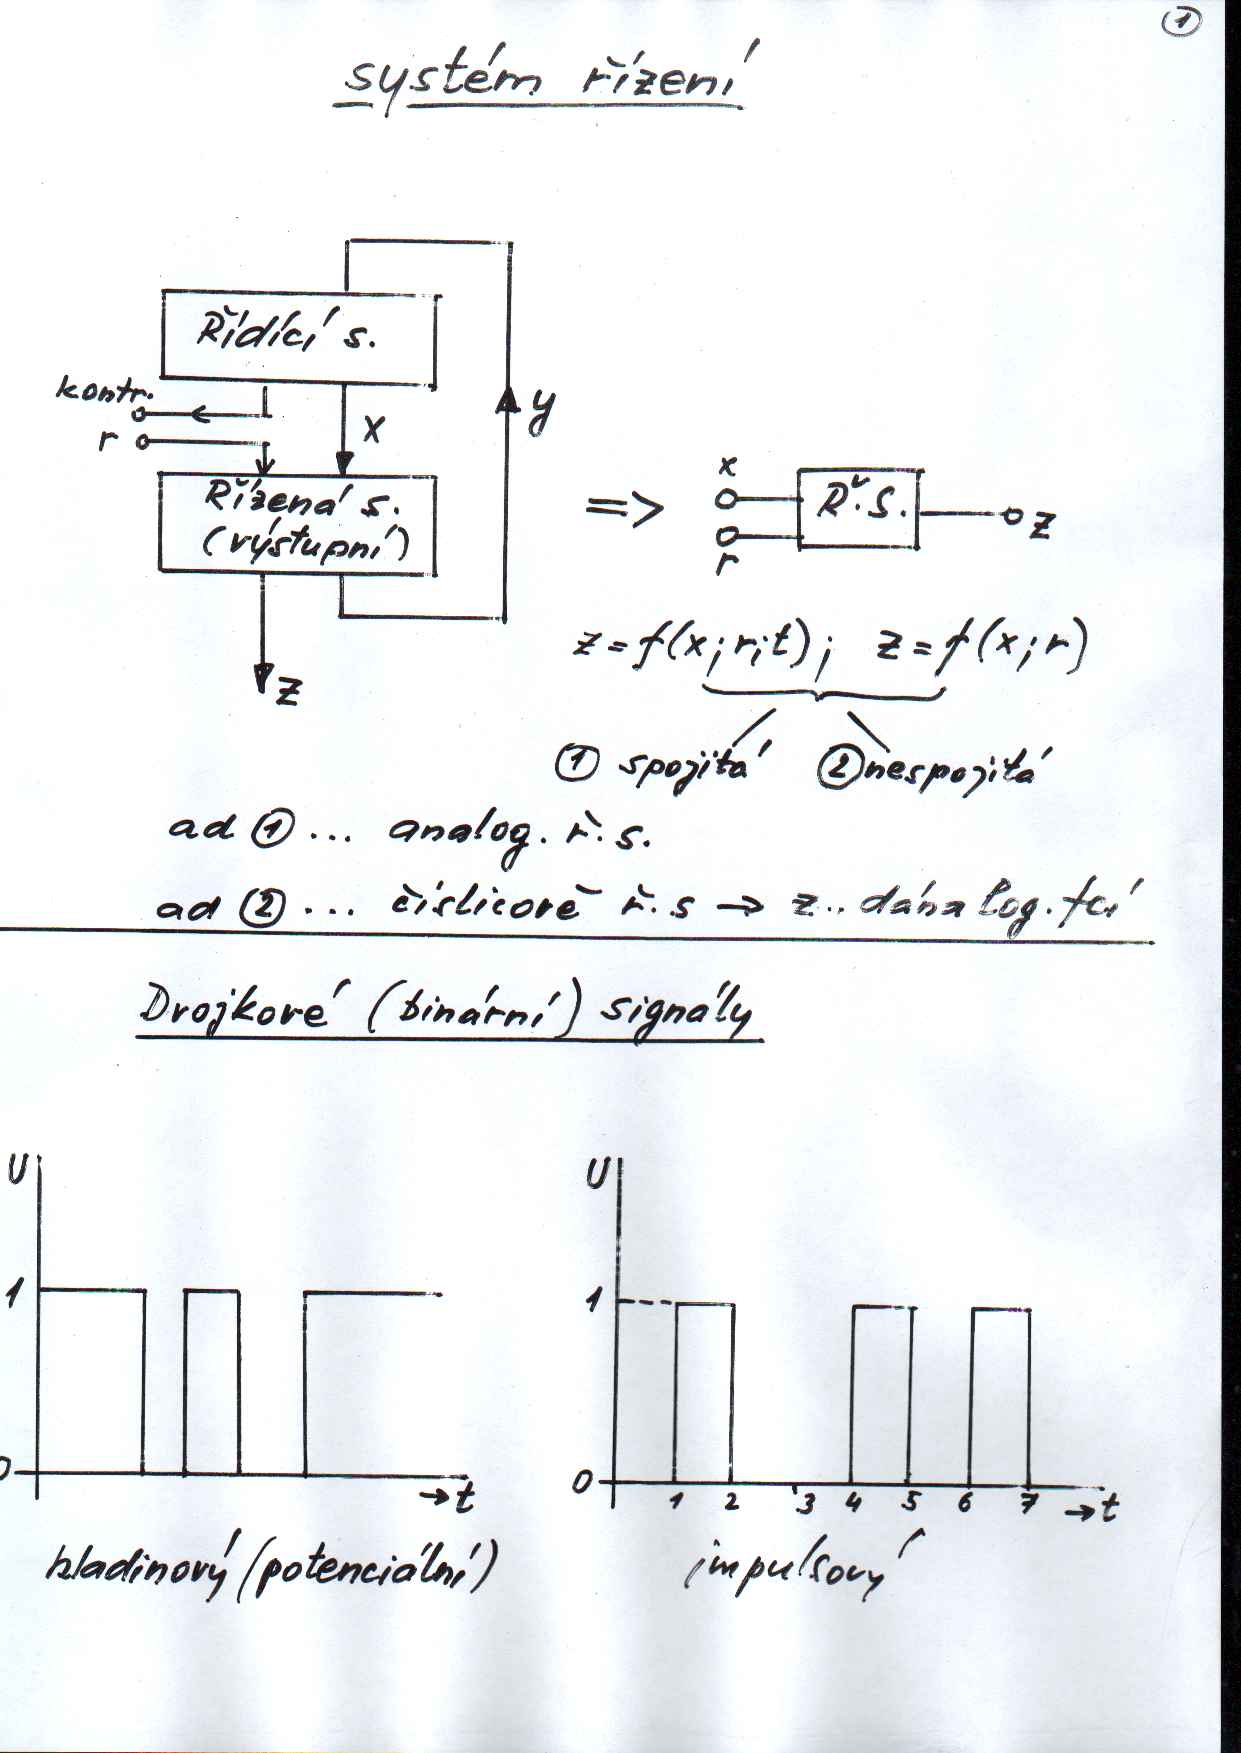 1
systém řízení
Řídící s.
kontr.
r
x
y
Řízená s.
(výstupní)
z
=>
x
r
Ř.S.
z
z=f(x;r;t); z=f(x;r)
① spojitá ② nespojitá
ad ① ... analog. ř.s.
ad ② ... číslicově ř.s → z.. dána log. fcí
Dvojkové (binární) signály
U
1
0
→t
hladinový (potenciální)
U
1
0
1 2 3 4 5 6 7
→t
impulsový